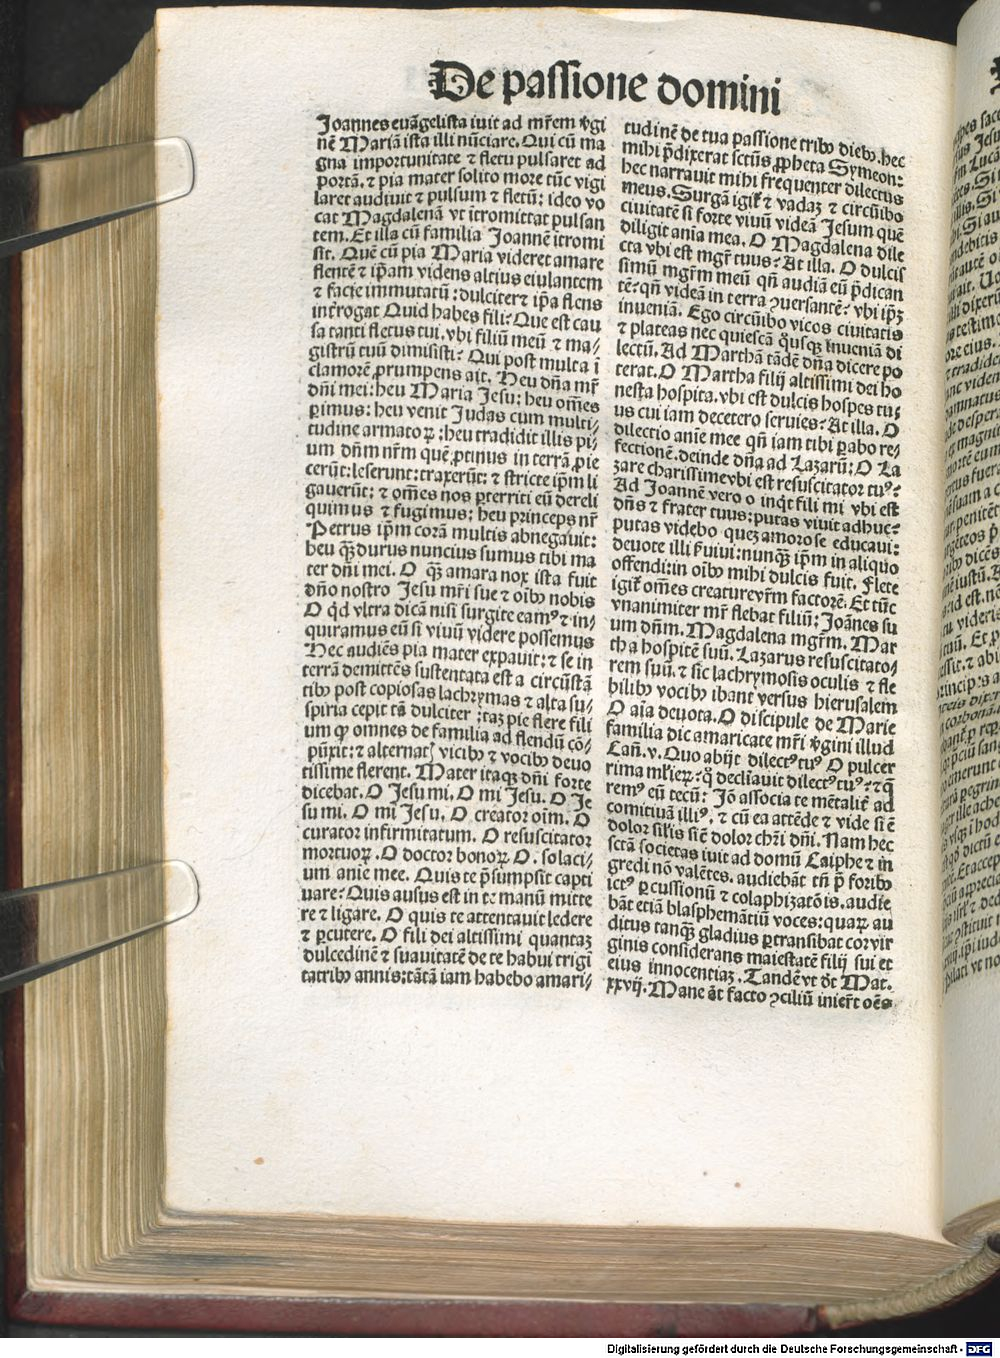 De passione domini
Joannes euãgelista iuit ad mr̃em v̾gi
nẽ Mariã ista illi nũciare. Qui cũ ma
gna importunitate ⁊ fletu pulsaret ad
portã. ⁊ pia mater solito more tũc vigi
laret audiuit ⁊ pulsum ⁊ fletũ: ideo vo
cat Magdalenã vt ĩtromittat pulsan
tem. Et illa cũ familia Joannẽ ĩtromi
sit. Quẽ cũ pia Maria videret amare
flentẽ ⁊ ip̃am videns altius eiulantem
⁊ facie immutatũ: dulciter ⁊ ip̃a flens
int̾rogat Quid habes fili? Que est cau
sa tanti fletus tui. vbi filiũ meũ ⁊ ma/
gistrũ tuũ dimisisti? Qui post multa ĩ
clamorẽ ꝓrumpens ait. Heu dñа mr̃
dñi mei: heu Maria Jesu: heu oẽs
ꝑimus: heu venit Judas cum multi/
tudine armatoꝝ: heu tradidit illis pi/
um dñm nr̃m quẽ ꝓtinus in terrã ꝓie
cerũt: leserunt: traxerũt: ⁊ stricte ip̃m li
gauerũt: ⁊ om̃es nos ꝑterriti eũ dereli
quimus ⁊ fugimus: heu princeps nr̃
Petrus ip̃m corã multis abnegauit:
heu q̃ꝫ durus nuncius sumus tibi ma
ter dñi mei. O q̃ꝫ amara nox ista fuit
dño nostro Jesu mr̃i sue ⁊ oĩbꝰ nobis
O qd̾ vltra dicã nisi surgite eamꝰ ⁊ in/
quiramus eũ si viuũ videre possemus
Hec audiẽs pia mater expauit: ⁊ se in
terrã demittẽs sustentata est a circũstã
tibꝰ post copiosas lachrymas ⁊ alta su/
spiria cepit tã dulciter: taꝫ pie flere fili
um qꝫ omnes de familia ad flendũ cõ/
pũxit: ⁊ alternatꝭ vicibꝰ ⁊ vocibꝰ deuo
tissime flerent. Mater itaqꝫ dñi forte
dicebat. O Jesu mi, O mi Jesu. O Je
su mi. O mi Jesu. O creator oĩm. O
curator infirmitatum. O resuscitator
mortuoꝝ. O doctor bonoꝝ O. solaci/
um anie mee. Quis te p̃sumpsit capti
uare? Quis ausus est in te manũ mitte
re ⁊ ligare. O quis te attentauit ledere
⁊ ꝑcutere. O fili dei altissimi quantaꝫ
dulcedinẽ ⁊ suauitatẽ de te habui trigĩ
tatribꝰ annis: tãtã iam habebo amari/
tudinẽ de tua passione tribꝰ diebꝰ. hec
mihi p̃dixerat sctũs ꝓpheta Symeon:
hec narrauit mihi frequenter dilectus
meus. Surgã igit̃ ⁊ vadaꝫ ⁊ circũibo
ciuitatẽ si forte viuũ videã Jesum quẽ
diligit anĩa mea. O Magdalena dile
cta vbi est mgr̃ tuus? At illa. O dulcis
simũ mgr̃m meũ qñ audiã eũ p̃dican
tẽ? qñ videã in terra ꝯuersantẽ? vbi ip̃ꝫ
inueniã. Ego circũibo vicos ciuitatis
⁊ plateas nec quiescã q̊usqꝫ ĩnueniã di
lectũ. Ad Marthã tãdẽ dñа dicere po
terat. O Martha filij altissimi dei ho
nesta hospita. vbi est dulcis hospes tuꝰ
us cui iam decetero seruies? At illa. O
dilectio anĩe mee qñ iam tibi ꝑabo re/
fectionẽ. deinde dñа ad Lazarũ: O La
zare charissime vbi est resuscitator tuꝰ?
Ad Joannẽ vero o inqt fili mi vbi est
dñs ⁊ frater tuus: putas viuit adhuc?
putas videbo queꝫ amorose educaui:
deuote illi ẜuiui: nunqꝫ ip̃m in aliquo
offendi: in oĩbꝰ mihi dulcis fuit. Flete
igit̃ om̃es creature vr̃m factorẽ. Et tũc
vnanimiter mr̃ flebat filiũ: Joãnes su
um dñm. Magdalena mgr̃m. Mar
tha hospitẽ suũ. Lazarus resuscitato/
rem suũ. ⁊ sic lachrymosis oculis ⁊ fle
bilibꝰ vocibꝰ ibant versus hierusalem
O aĩa deuota. O discipule de Marie
familia dic amaricate mr̃i v̾gini illud
Cañ. v. Quo abijt dilectꝰ tuꝰ O pulcer
rima mlr̃ieꝝ? q̊ declĩauit dilectꝰ tuꝰ? ⁊ q̃
remꝰ eũ tecũ: Jõ associa te mẽtalit̾ ad
comitiuã illiꝰ, ⁊ cũ ea attẽde ⁊ vide si ẽ
dolor silis sic̃ dolor chr̃i dñi. Nam hec
sctã societas iuit ad domũ Caiphe ⁊ in
gredi nõ valẽtes. audiebãt tñ p̃ foribꝰ
ictꝰ ꝑcussionũ ⁊ colaphizatõis. audie
bãt etiã blasphemãtiũ voces: quaꝝ au
ditus tanqꝫ gladius ꝑtransibat cor vir
ginis considerans maiestatẽ filij sui et
eius innocentiaꝫ. Tandẽ vt dr̃ Mat.
xxvij. Mane aũt facto ꝯciliũ inier̃t oẽs
Digitalisierung gefördert durch die Deutsche Forschungsgemeinschaft - DFG